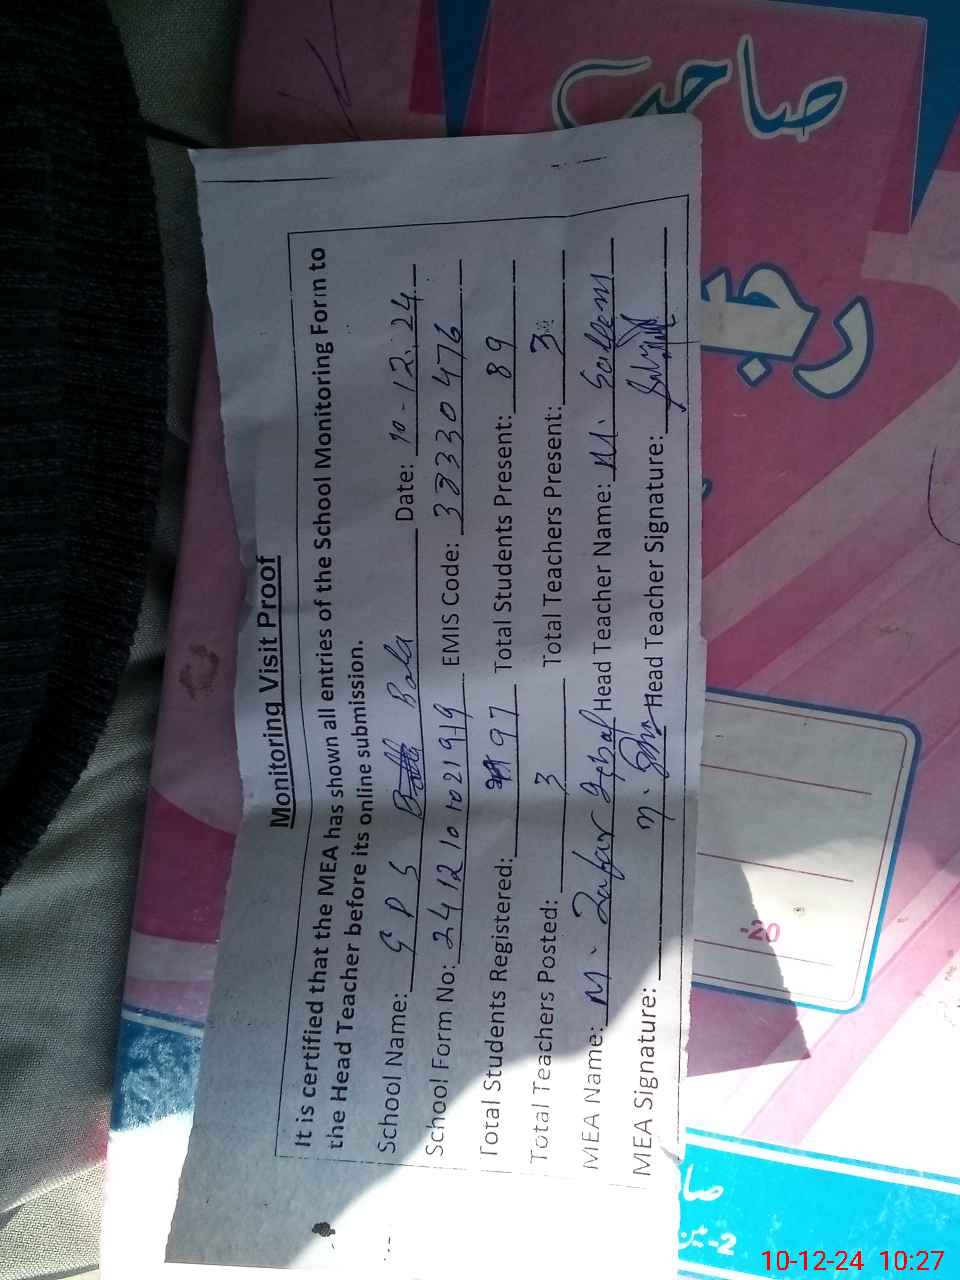 Monitoring Visit Proof
It is certified that the MEA has shown all entries of the School Monitoring Form to
the Head Teacher before its online submission.
School Name: G P S Bala Date: 10-12.24
School Form No: 2412101021919 EMIS Code: 33330476
Total Students Registered: 97 Total Students Present: 89
Total Teachers Posted: 3 Total Teachers Present: 3
MEA Name: M. Zafar Iqbal Head Teacher Name: M. Saleem
MEA Signature: Head Teacher Signature:
صاحب
-20
10-12-24 10:27